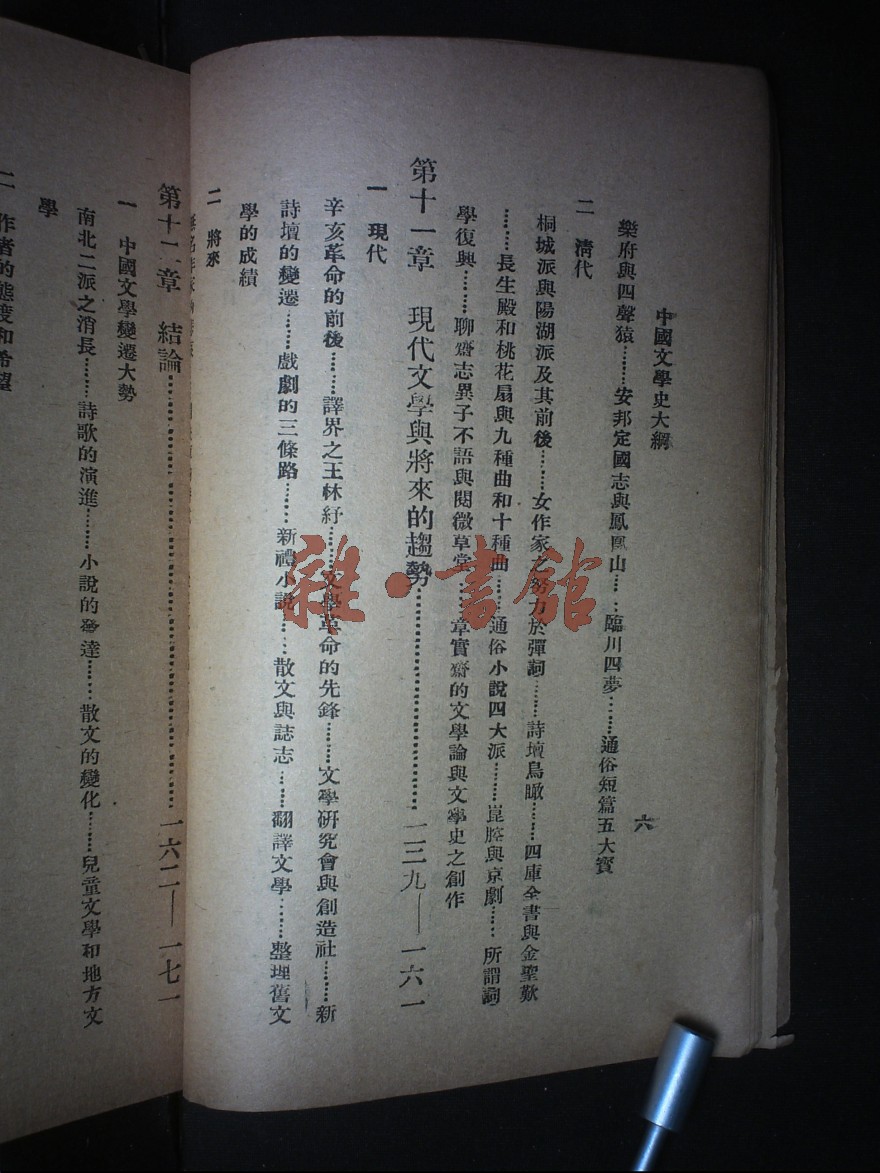 中國文學史大綱
六
樂府與四聲猿………安邦定國志與鳳凰山………臨川四夢………通俗短篇五大寶
二 淸代
桐城派與陽湖派及其前後………女作家之努力於彈詞………詩壇鳥瞰………四庫全書與金聖歎
………長生殿和桃花扇與九種曲和十種曲………通俗小說四大派………崑腔與京劇………所謂詞
學復興………聊齋志異子不語與閱微草堂………章實齋的文學論與文學史之創作
第十一章 現代文學與將來的趨勢………一三九—一六一
一 現代
辛亥革命的前後………譯界之王林紓………文學革命的先鋒………文學硏究會與創造社………新
詩壇的變遷………戲劇的三條路………新禮小說………散文與誌志………翻譯文學………整理舊文
學的成績
二 將來
第十二章 結論………一六二—一七一
一 中國文學變遷大勢
南北二派之消長………詩歌的演進………小說的發達………散文的變化………兒童文學和地方文
學
二 作者的態度和希望
雜·書館